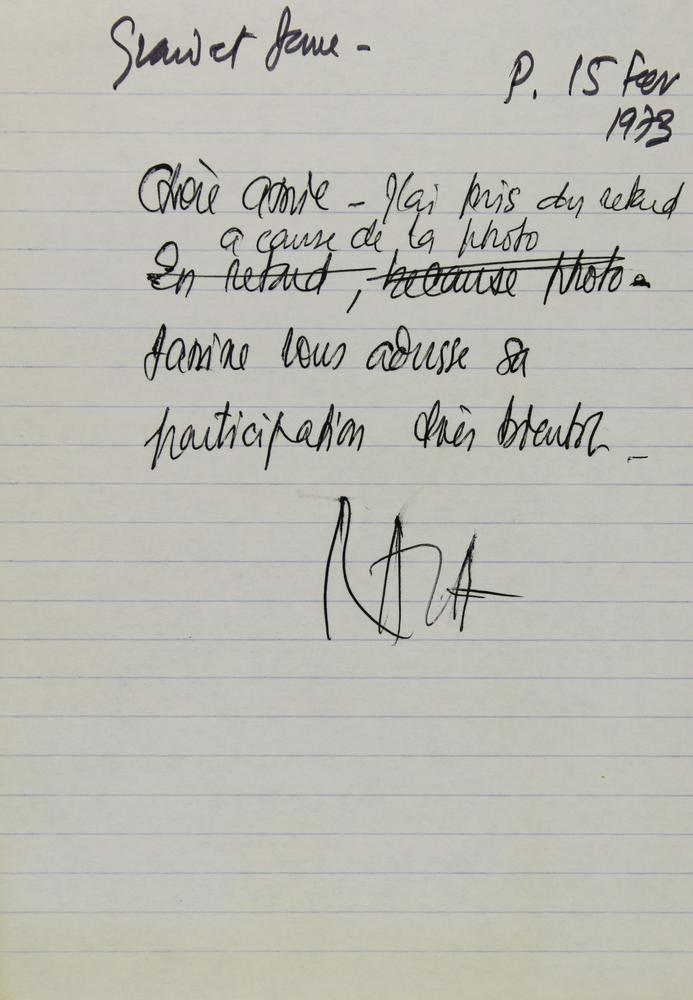 P. 15 Fev
1973
Chère amie - J'ai pris du retard
a cause de la photo
En retard, because photo -
Janine vous adresse sa
participation très bientot -